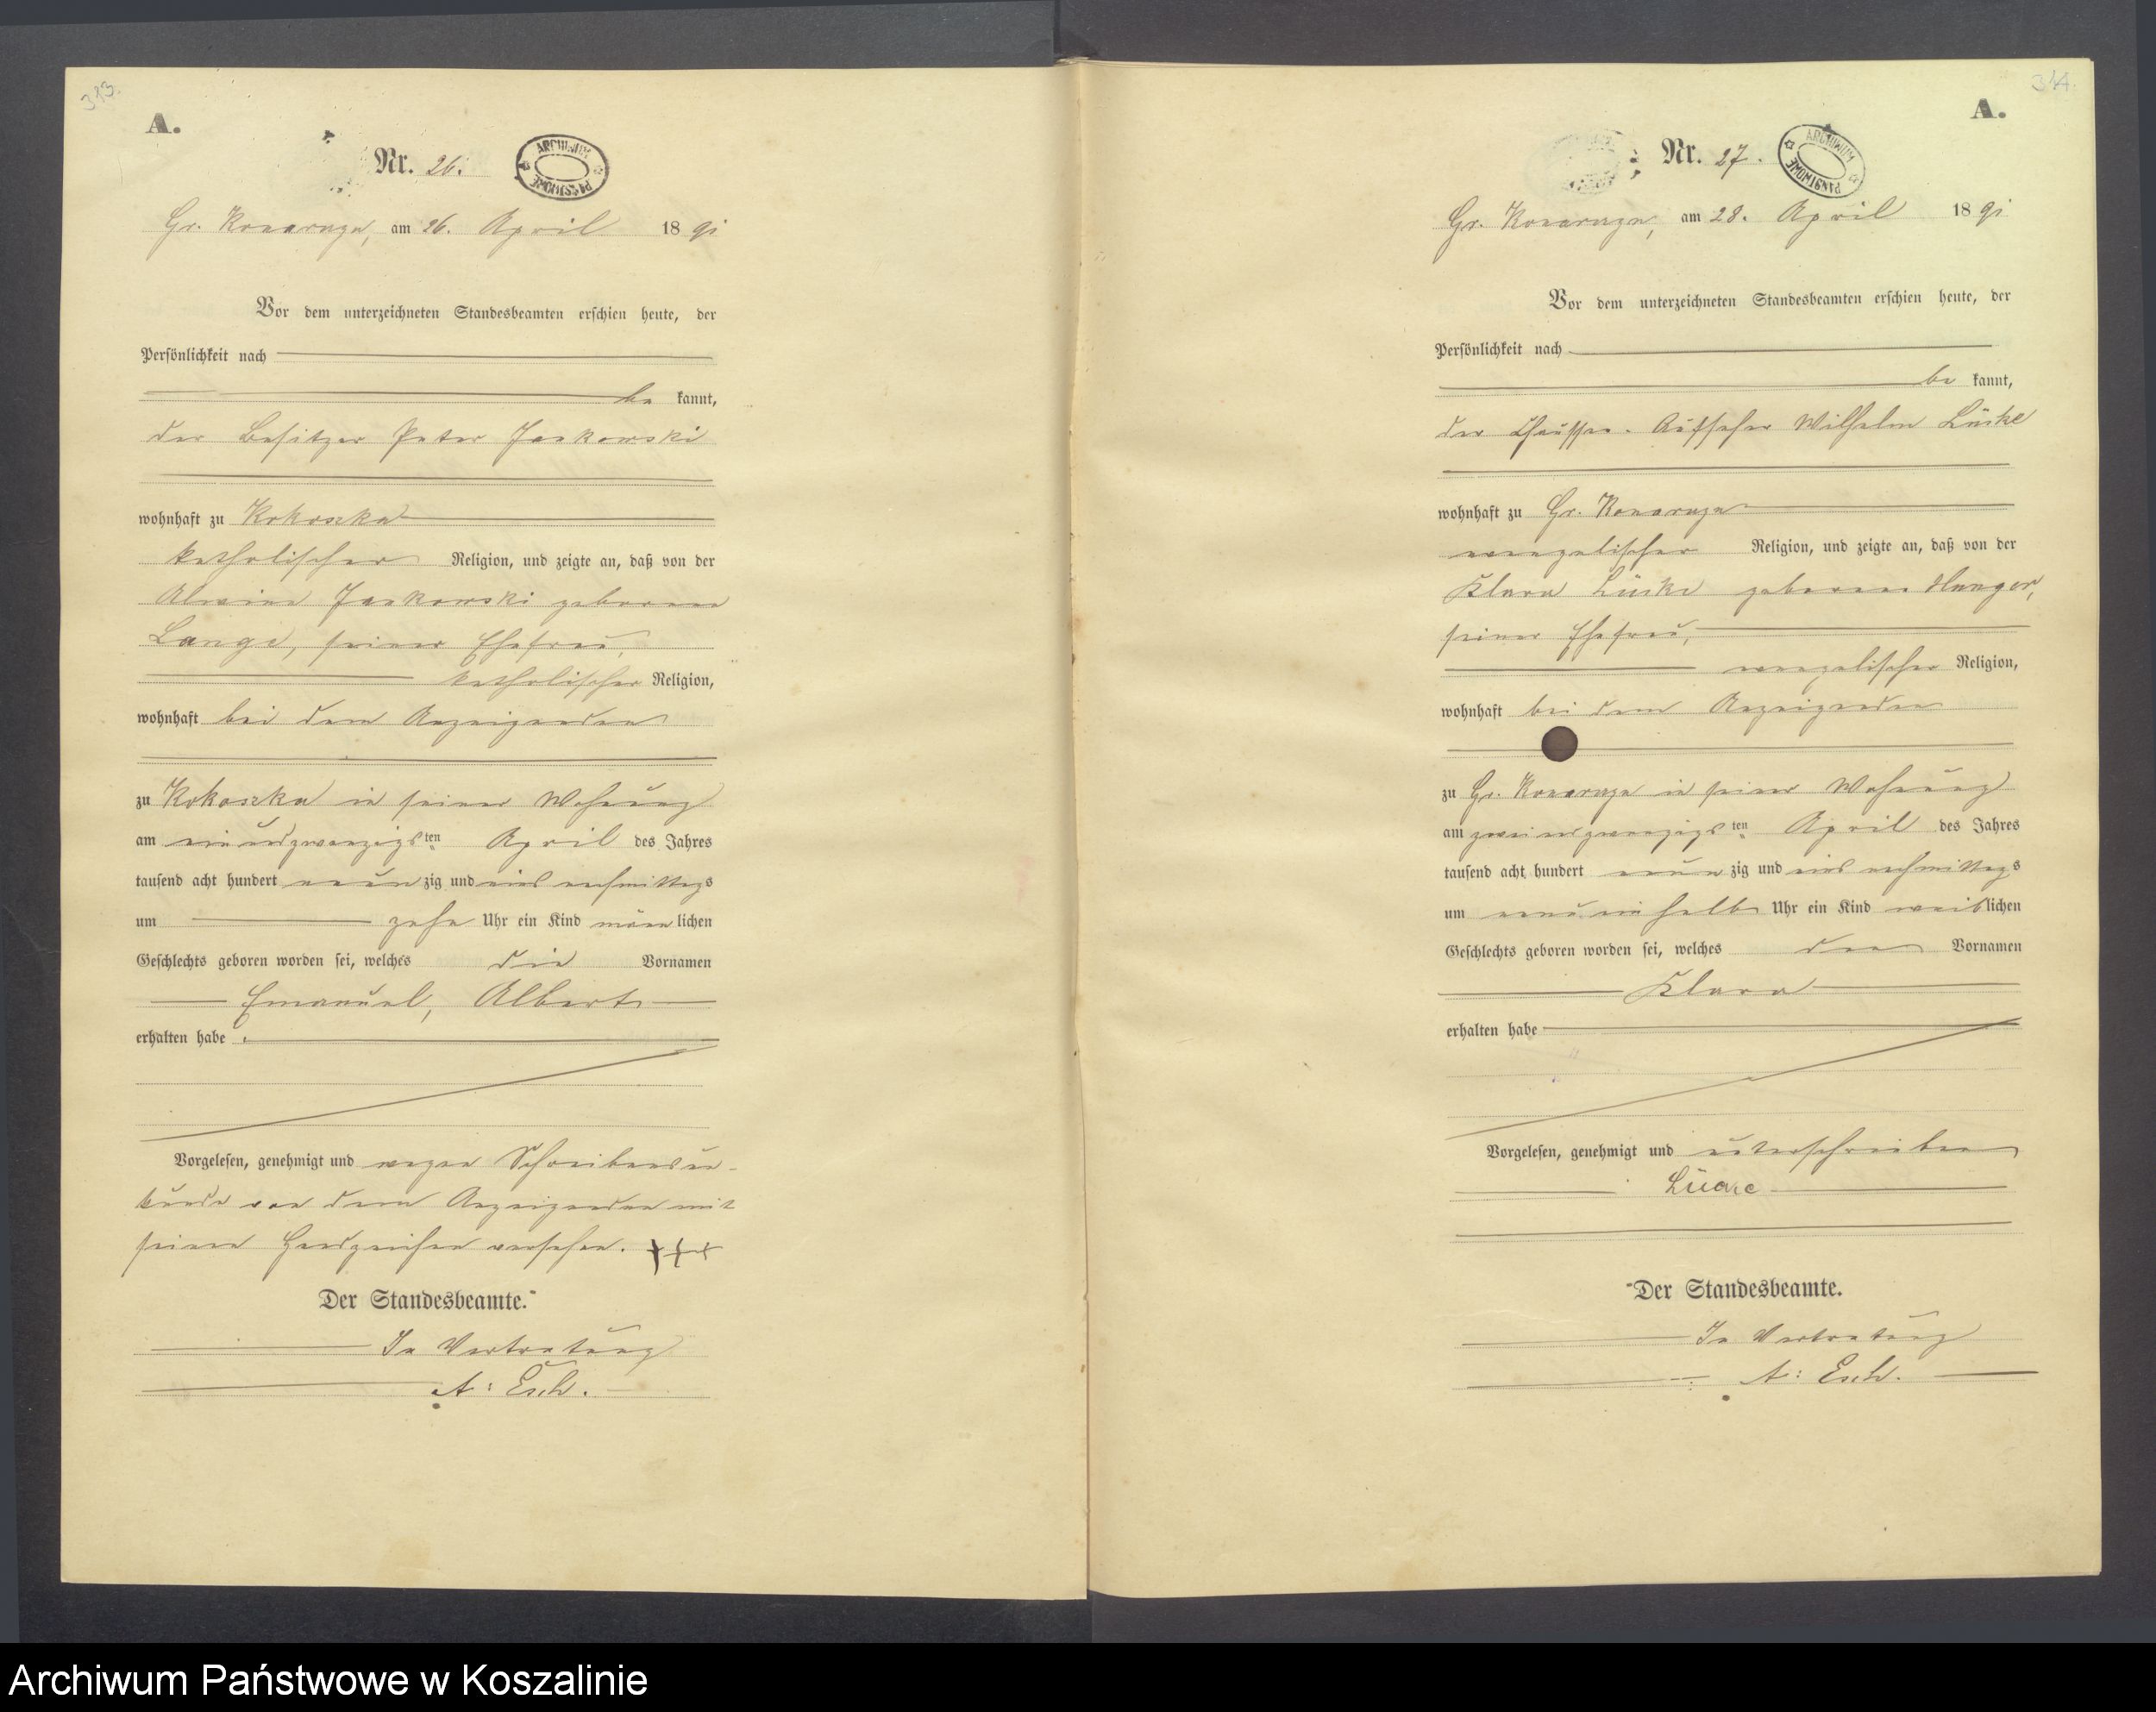 313.
A.
Nr. 26.
ARCHIWUM PAŃSTWOWE
Gr. Konarczyn, am 26. April 1891
Vor dem unterzeichneten Standesbeamten erschien heute, der
Persönlichkeit nach
be kannt,
der Besitzer Peter Jankowski
wohnhaft zu Kokoszka
katholischer Religion, und zeigte an, daß von der
Alwine Jankowski geborene
Lange, seiner Ehefrau,
katholischer Religion,
wohnhaft bei dem Anzeigenden
zu Kokoszka in seiner Wohnung
am einundzwanzigsten April des Jahres
tausend acht hundert neun zig und eins nachmittags
um zehn Uhr ein Kind männ lichen
Geschlechts geboren worden sei, welches die Vornamen
Emanuel, Albert
erhalten habe .
Vorgelesen, genehmigt und wegen Schreibensun-
kunde von dem Anzeigenden mit
seinen Handzeichen versehen. +++
Der Standesbeamte.
In Vertretung
A: Esch.
314.
A.
Nr. 27.
ARCHIWUM PAŃSTWOWE
Gr. Konarczyn, am 28. April 1891
Vor dem unterzeichneten Standesbeamten erschien heute, der
Persönlichkeit nach
be kannt,
der Chaussee-Aufseher Wilhelm Lücke
wohnhaft zu Gr. Konarczyn
evangelischer Religion, und zeigte an, daß von der
Klara Lücke geborene
seiner Ehefrau,
evangelischer Religion,
wohnhaft bei dem Anzeigenden
zu Gr. Konarczyn in seiner Wohnung
am zweiundzwanzigsten April des Jahres
tausend acht hundert neun zig und eins nachmittags
um neuneinhalb Uhr ein Kind weib lichen
Geschlechts geboren worden sei, welches den Vornamen
Klara
erhalten habe
Vorgelesen, genehmigt und unterschrieben
Lücke
Der Standesbeamte.
In Vertretung
A: Esch.
Archiwum Państwowe w Koszalinie